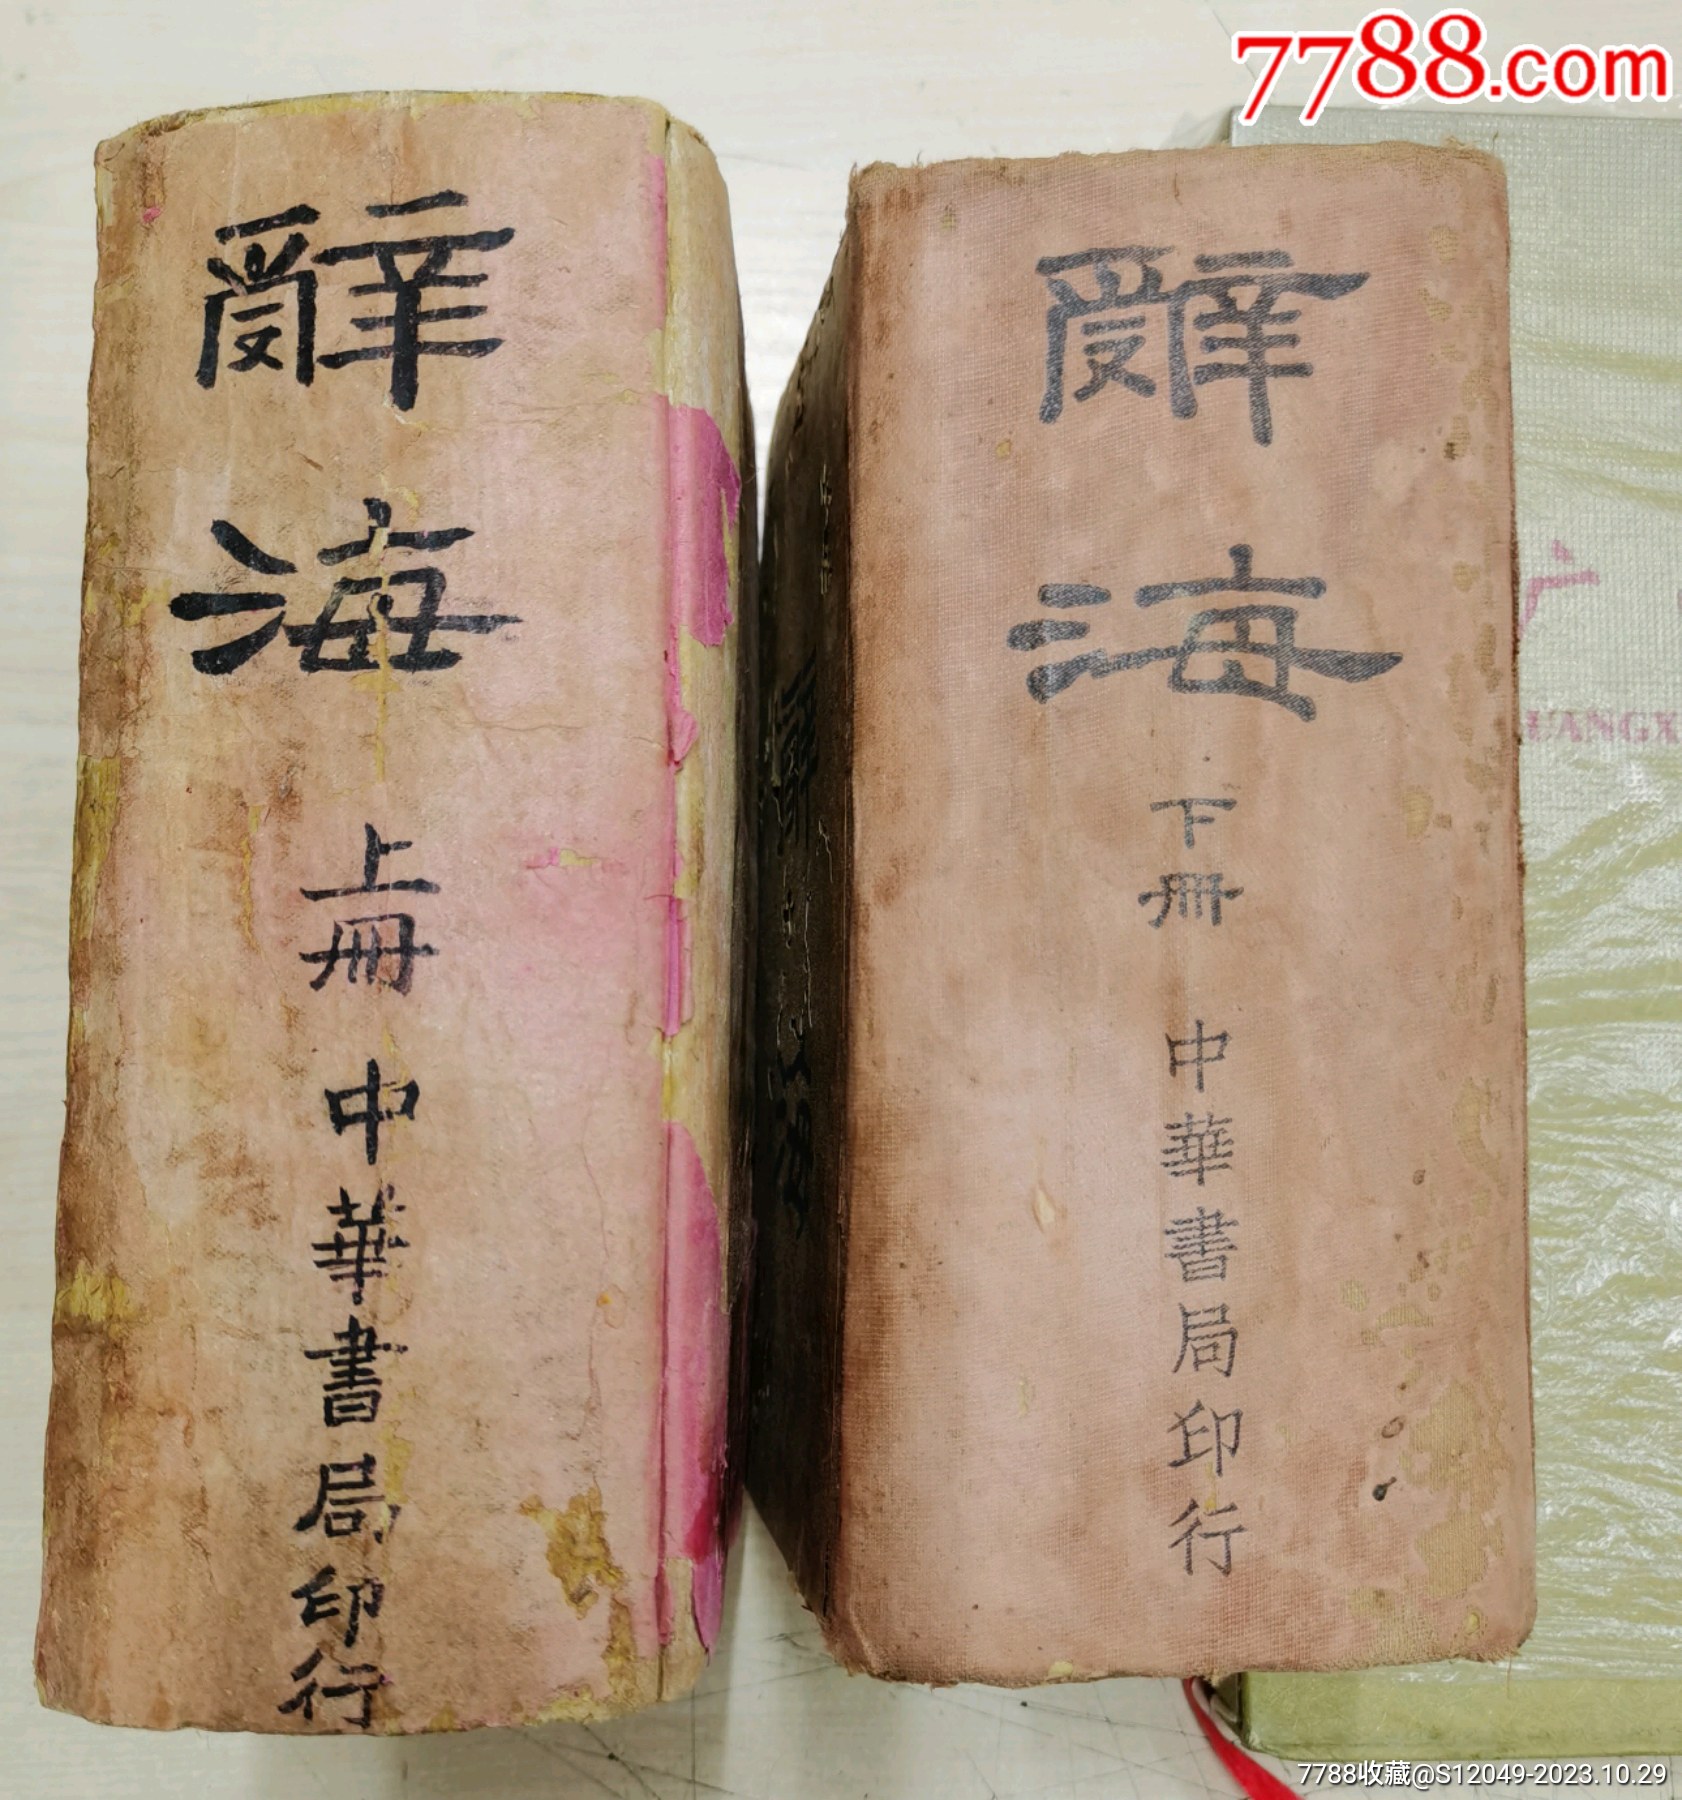 7788.com
辭海
上册
中華書局印行
辭海
下册
中華書局印行
UANGX
7788收藏@S12049-2023.10.29